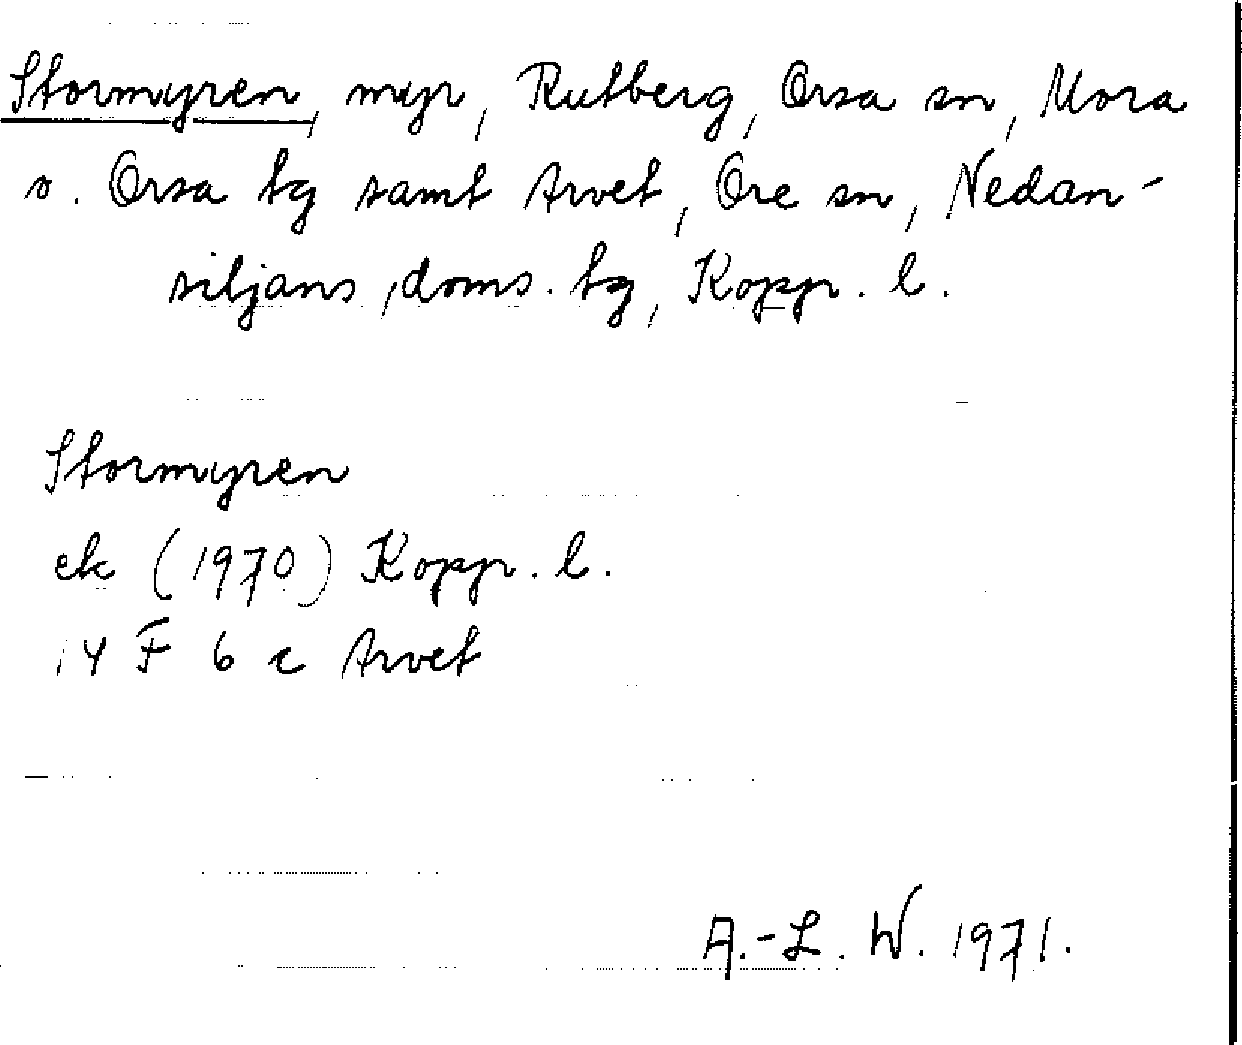 Stormyren, myr, Rutberg, Orsa sn, Mora
o. Orsa tg samt Arvet, Ore sn, Nedan-
siljans doms. tg, Kopp. l.
Stormyren
ek (1970) Kopp. l.
14 F 6 c Arvet
A.-L. W. 1971.